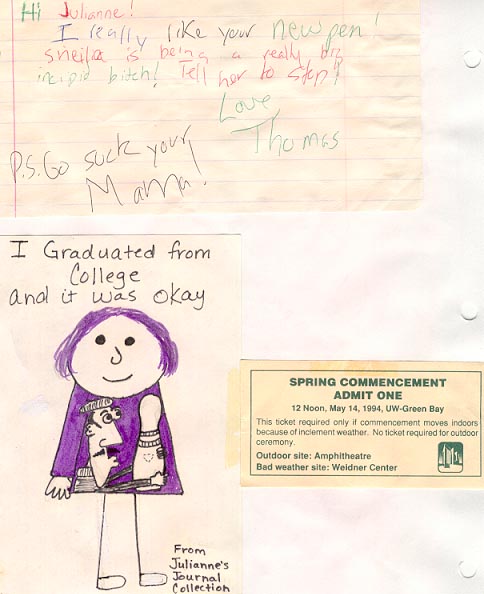 Hi Julianne!
I really like your new pen!
Sheila is being a really big
incipid bitch! Tell her to stop!
Love
Thomas
P.S. Go suck your
Mama!
I Graduated from
College
and it was okay
From
Julianne's
Journal
Collection
SPRING COMMENCEMENT
ADMIT ONE
12 Noon, May 14, 1994, UW-Green Bay
This ticket required only if commencement moves indoors
because of inclement weather. No ticket required for outdoor
ceremony.
Outdoor site: Amphitheatre
Bad weather site: Weidner Center